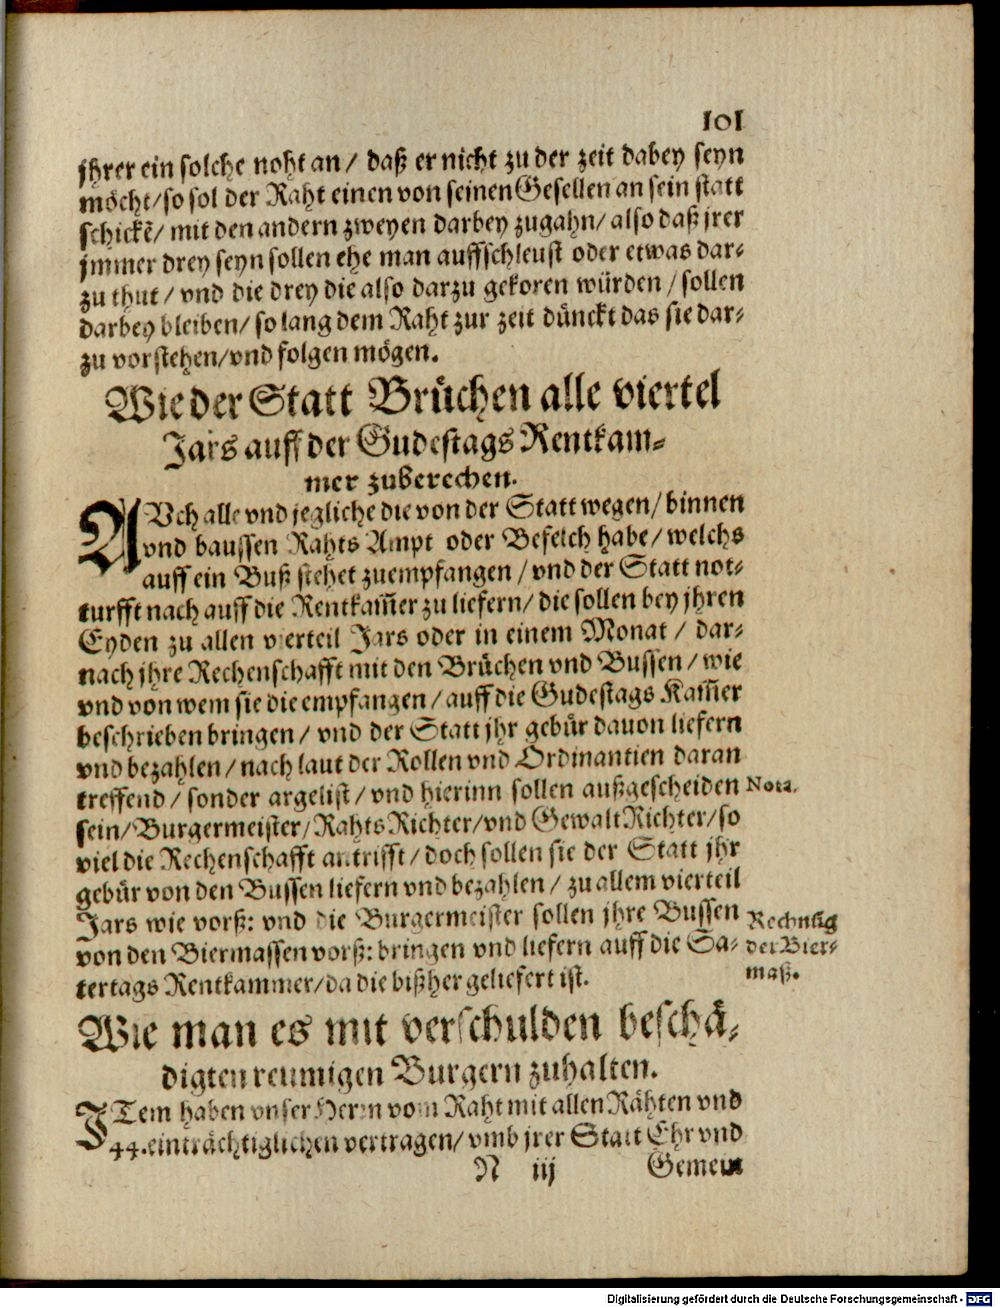 101
jhrer ein solche noht an / daß er nicht zu der zeit dabey seyn
möcht/so sol der Raht einen von seinen Gesellen an sein statt
schickẽ/ mit den andern zweyen darbey zugahn/ also daß jrer
jmmer drey seyn sollen ehe man auffschleust oder etwas dar-
zu thut / vnd die drey die also darzu gekoren würden / sollen
darbey bleiben/ so lang dem Raht zur zeit dünckt das sie dar-
zu vorstehen/vnd folgen mögen.
Wie der Statt Brüchen alle viertel
Jars auff der Gudestags Rentkam-
mer zuberechen.
AVch alle vnd jegliche die von der Statt wegen/ binnen
vnd baussen Rahts Ampt oder Befelch habe/ welchs
auff ein Buß stehet zuempfangen / vnd der Statt not-
turfft nach auff die Rentkam̃er zu liefern/ die sollen bey jhren
Eyden zu allen vierteil Jars oder in einem Monat / dar-
nach jhre Rechenschafft mit den Brüchen vnd Bussen / wie
vnd von wem sie die empfangen / auff die Gudestags Kam̃er
beschrieben bringen / vnd der Statt jhr gebür dauon liefern
vnd bezahlen / nach laut der Rollen vnd Ordinantien daran
treffend / sonder argelist / vnd hierinn sollen außgescheiden
Nota.
sein/ Burgermeister/ Rahts Richter/vnd Gewalt Richter/ so
viel die Rechenschafft antrifft / doch sollen sie der Statt jhr
gebür von den Bussen liefern vnd bezahlen / zu allem vierteil
Jars wie vorß: vnd die Burgermeister sollen jhre Bussen
von den Biermassen vorß: bringen vnd liefern auff die Sa-
tertags Rentkammer/ da die bißher geliefert ist.
Rechnũg
der Bier-
maß.
Wie man es mit verschulden beschä-
digten reumigen Burgern zuhalten.
JTem haben vnser Herrn vom Raht mit allen Rähten vnd
44. einträchtiglichen vertragen/ vmb jrer Statt Ehr vnd
N iij
Gemein
Digitalisierung gefördert durch die Deutsche Forschungsgemeinschaft - DFG